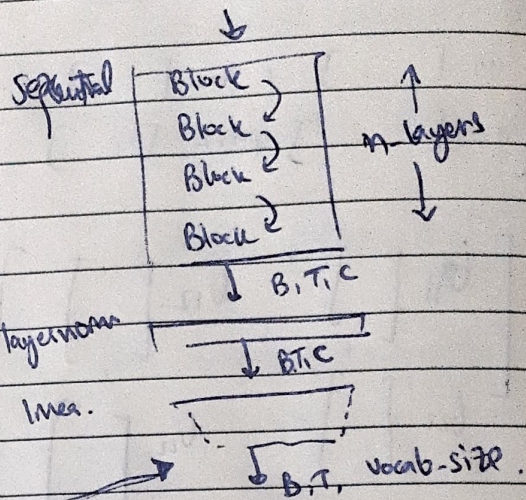 Sequential Block
Block n-layers
Block
Block
B,T,C
layernorm
B,T,C
linea.
B,T, vocab-size.